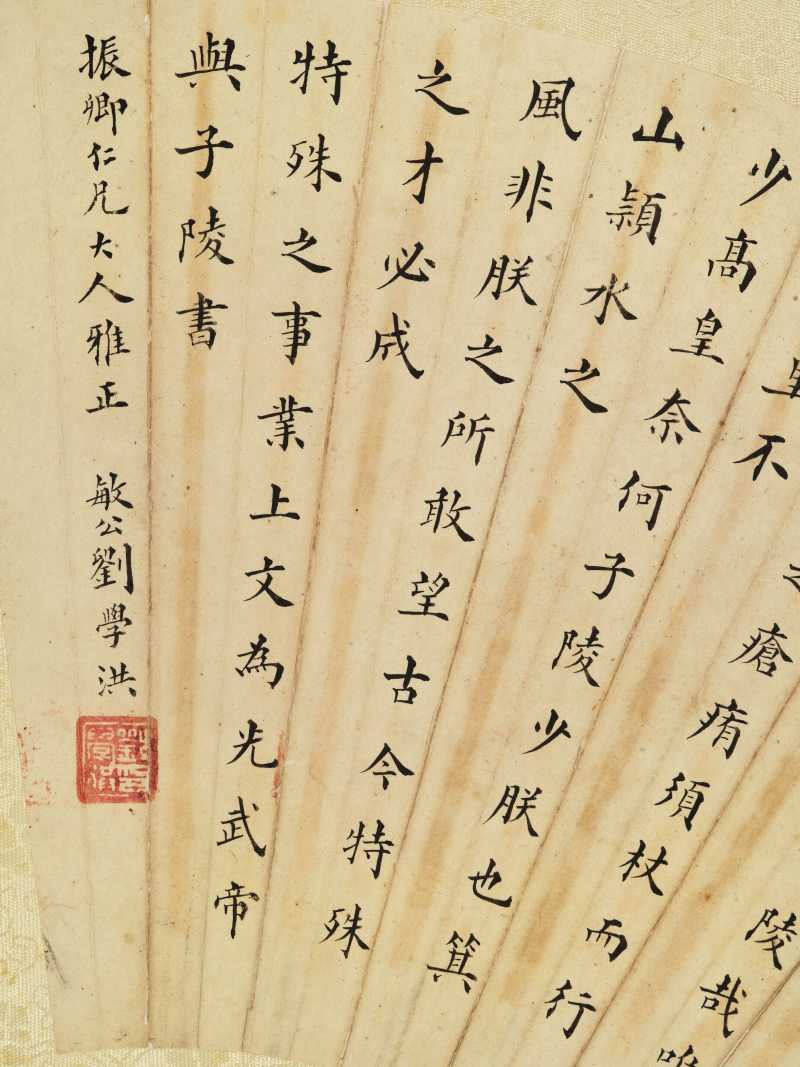 陵哉唯
瘡痏須杖而行
里不
少高皇奈何子陵少朕也箕
山潁水之
風非朕之所敢望古今特殊
之才必成
特殊之事業上文為光武帝
與子陵書
振卿仁兄大人雅正 敏公劉學洪